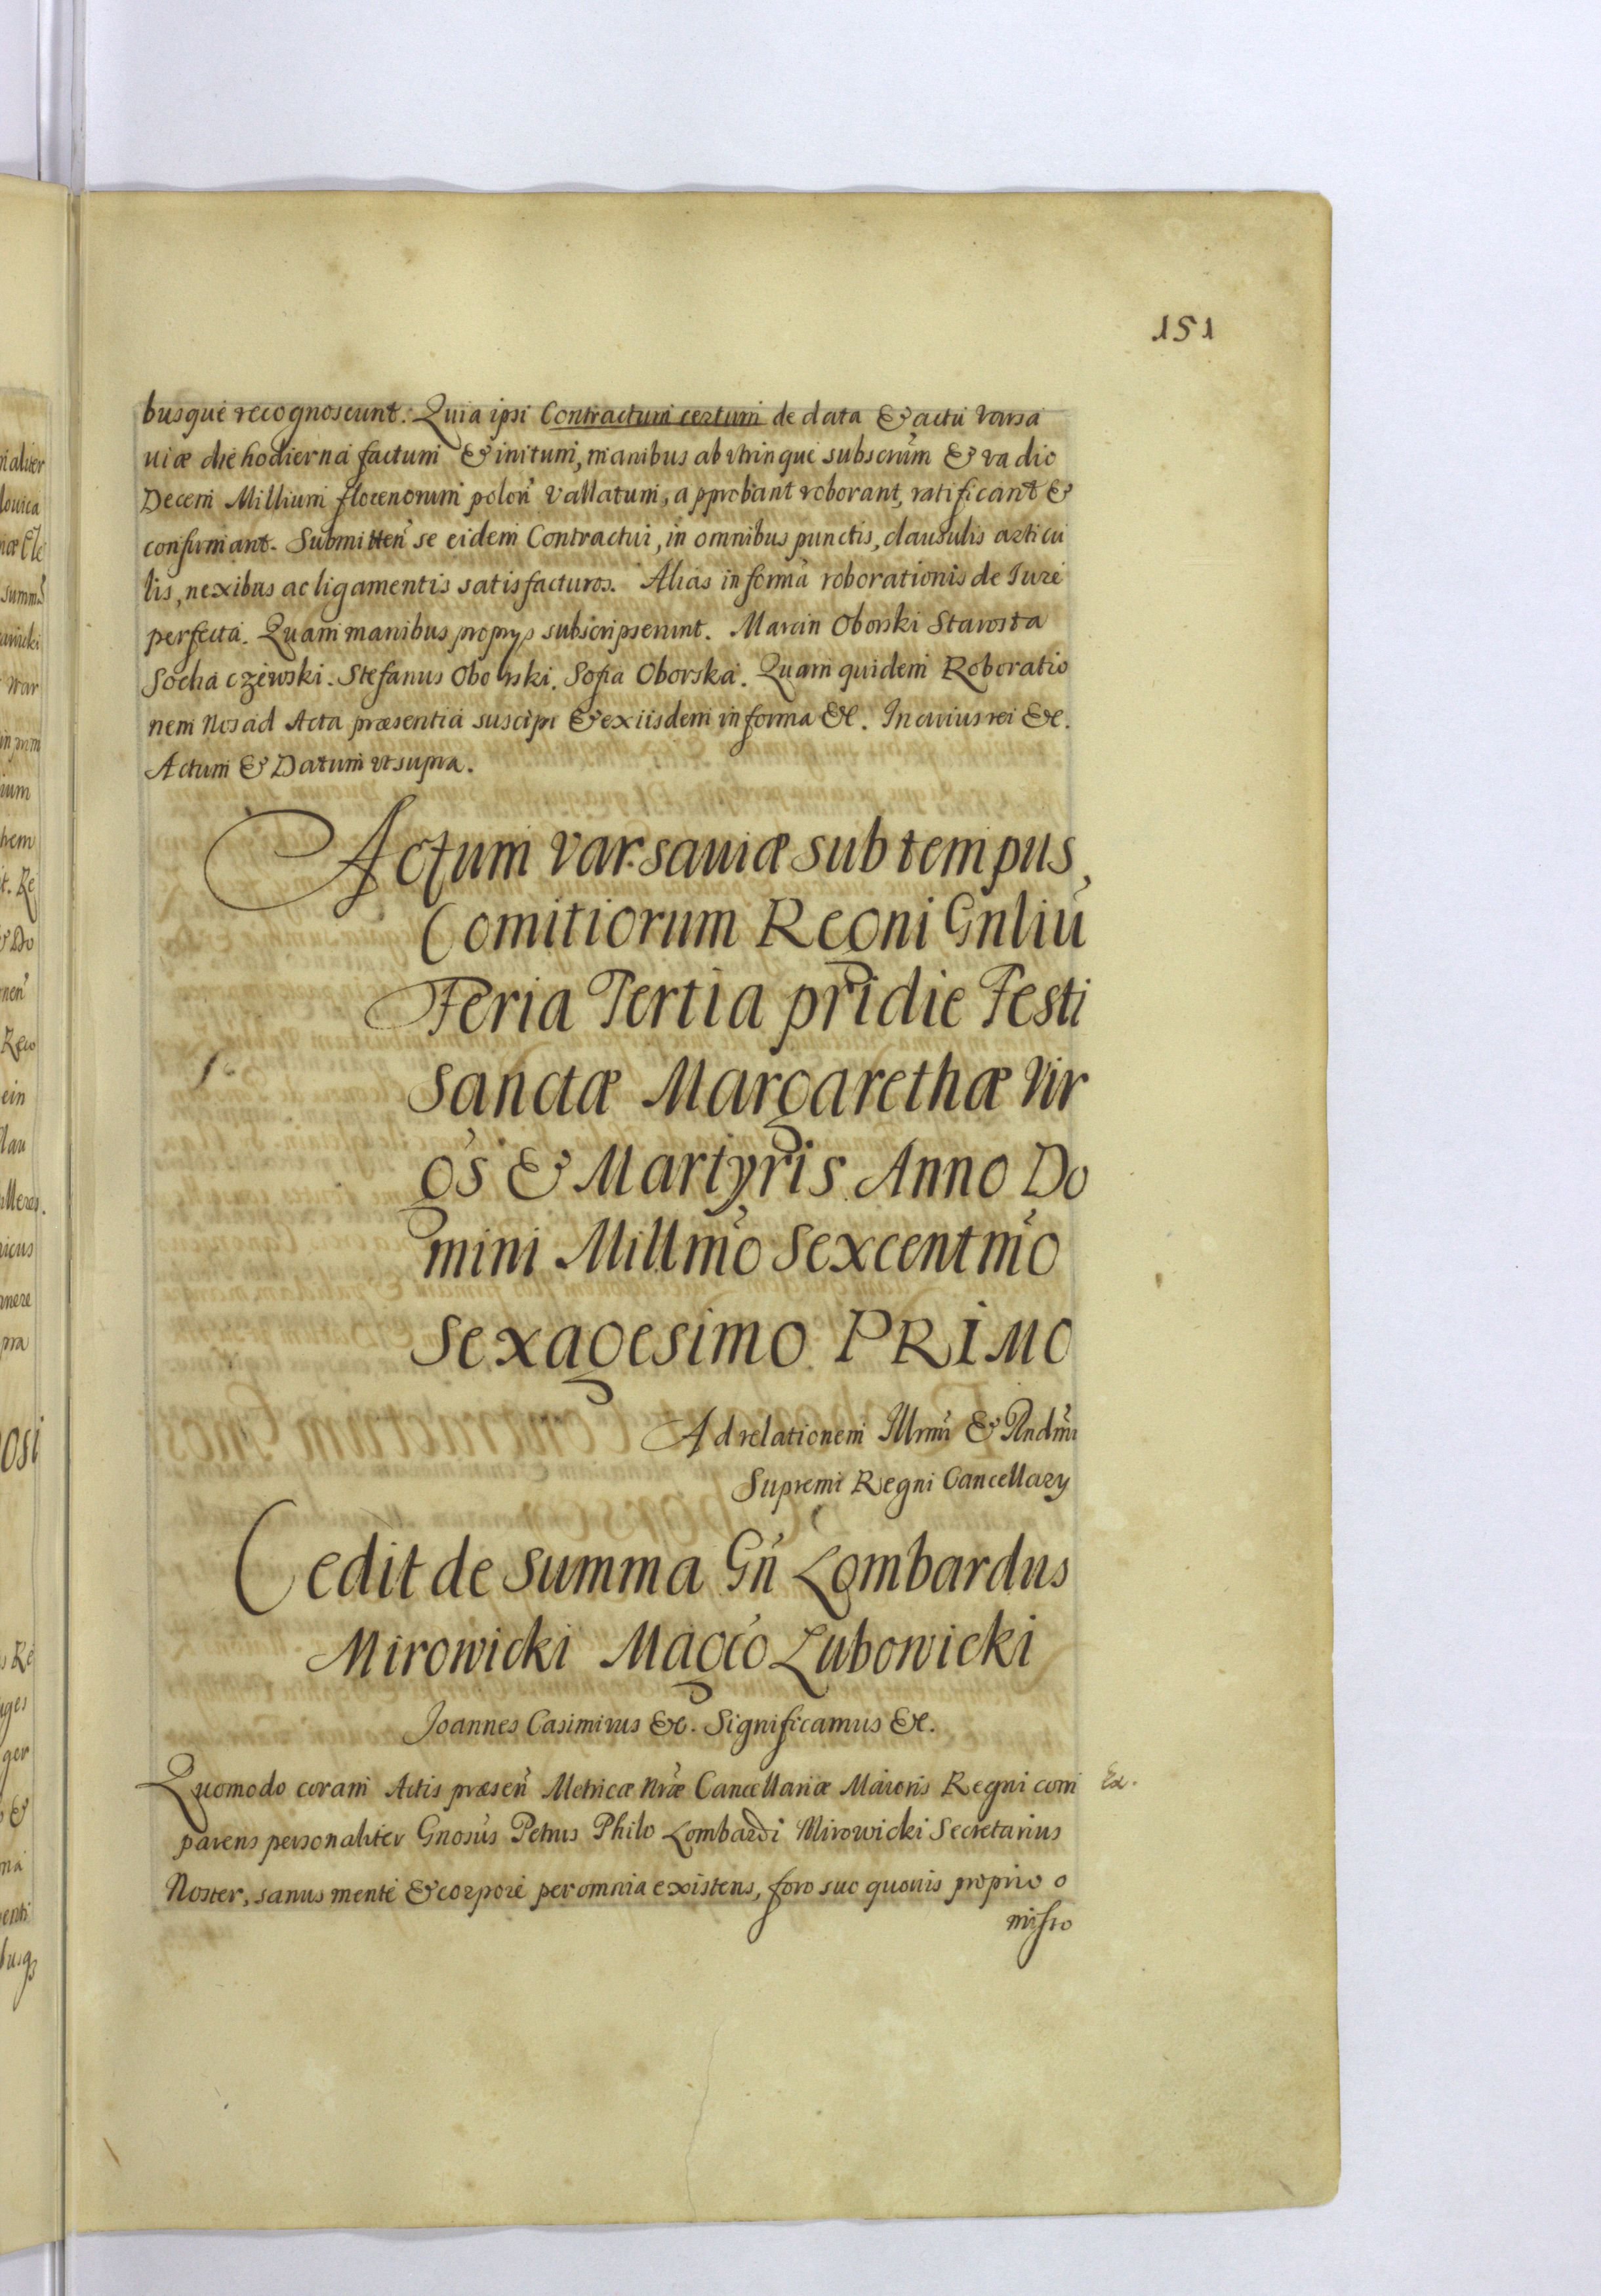 151
busque recognoscunt. Quia ipsi Contractum certum de data & actu Varsa
uiæ die hodierna factum & initum, manibus ab vtrinque subscrim̃ & vadio
Decem Millium florenorum polon̄ vallatum, approbant roborant, ratificant &
confirmant. Submitten̄ se eidem Contractui, in omnibus punctis, clausulis articu
lis, nexibus ac ligamentis satisfacturos. Alias in forma roborationis de Iure
perfecta. Quam manibus proprys subscripserunt. Marcin Oborski Starosta
Sochaczewski. Stefanus Oborski. Sofia Oborska. Quam quidem Roboratio
nem Nos ad Acta præsentia suscipi & ex iisdem in forma &c. In cuius rei &c.
Actum & Datum vt supra.
Actum Varsauiæ sub tempus
Comitiorum Regni Gnliũ
Feria Tertia pridie Festi
Sanctæ Margarethæ Vir
g̃s & Martyris Anno Do
mini Millm̃o Sexcentm̃o
Sexagesimo PRIMO
Ad relationem Illrmi & Rndmi
Supremi Regni Cancellary
Cedit de Summa Gñ Lombardus
Mirowicki Magc̃o Lubowicki
Joannes Casimirus &c. Significamus &c.
Quomodo coram Actis præsen̄ Metricæ Nr̃æ Cancellariæ Maioris Regni com
Ex.
parens personaliter Gnosus Petrus Philo Lombardi Mirowicki Secretarius
Noster, sanus mente & corpore per omnia existens, foro suo quouis proprio o
misso